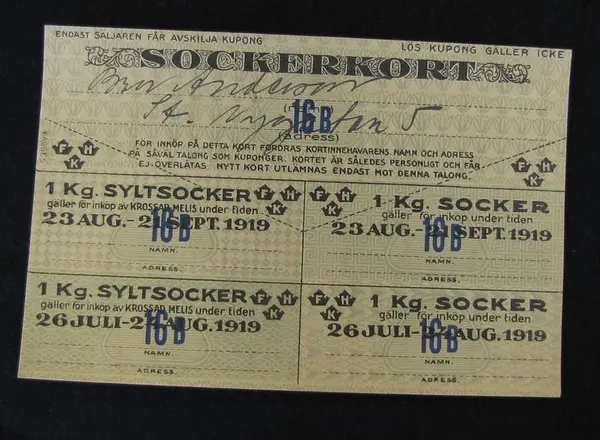 ENDAST SÄLJAREN FÅR AVSKILJA KUPONG
LÖS KUPONG GÄLLER ICKE
SOCKERKORT
Anderson
St. 5
16 B
(adress)
FÖR INKÖP PÅ DETTA KORT FORDRAS KORTINNEHAVARENS NAMN OCH ADRESS
PÅ SÅVÄL TALONG SOM KUPONGER. KORTET ÄR SÅLEDES PERSONLIGT OCH FÅR
EJ ÖVERLÅTAS. NYTT KORT UTLÄMNAS ENDAST MOT DENNA TALONG.
F H K
F H K
1 Kg. SYLTSOCKER
F H K
gäller för inköp av KROSSAD MELIS under tiden
23 AUG.-21 SEPT. 1919
16 B
NAMN.
ADRESS.
F H K
1 Kg. SOCKER
gäller för inköp under tiden
23 AUG.-21 SEPT. 1919
16 B
NAMN.
ADRESS.
1 Kg. SYLTSOCKER
F H K
gäller för inköp av KROSSAD MELIS under tiden
26 JULI-22 AUG. 1919
16 B
NAMN.
ADRESS.
F H K
1 Kg. SOCKER
gäller för inköp under tiden
26 JULI-22 AUG. 1919
16 B
NAMN.
ADRESS.